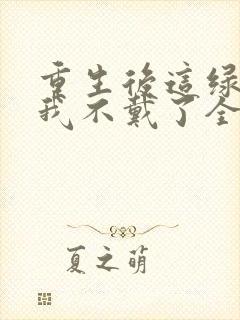 重生後這綠
我不戴了全
夏之萌